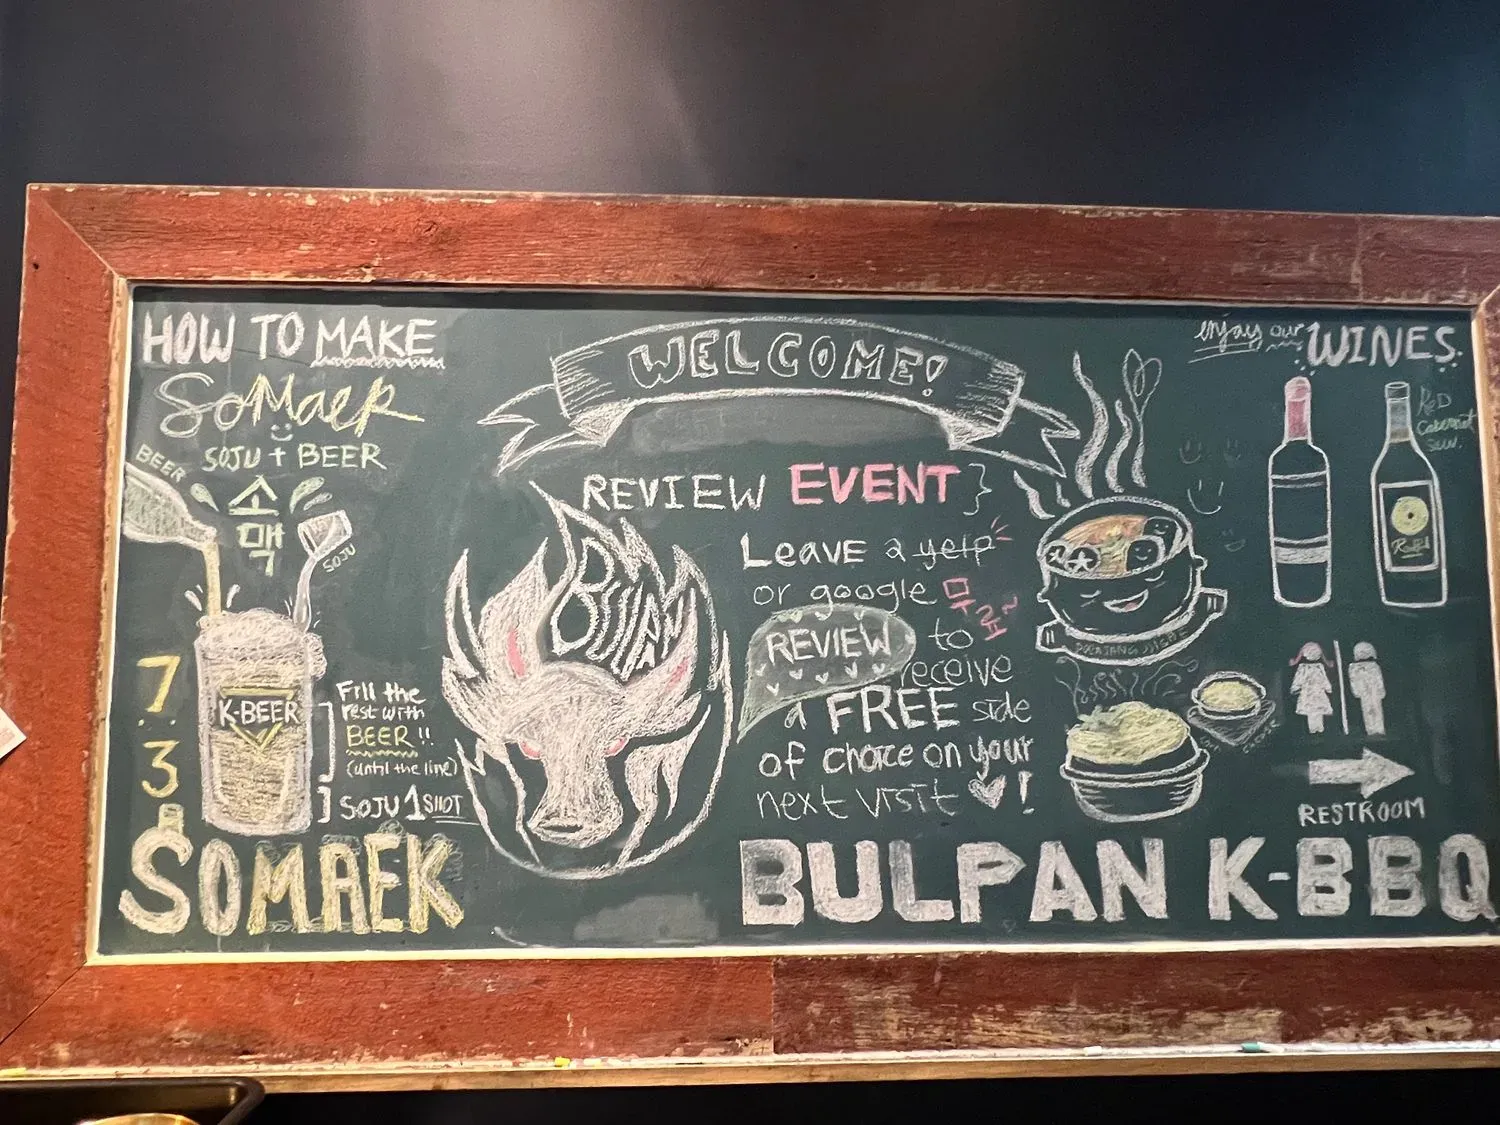 HOW TO MAKE
SOMAEK
SOJU + BEER
BEER
소
맥
SOJU
7
:
3
K-BEER
Fill the
rest with
BEER!!
(until the line)
SOJU 1 SHOT
SOMAEK
WELCOME!
BULPAN
REVIEW EVENT
Leave a yelp
or google
REVIEW
to
receive
a FREE side
of choice on your
next visit !
enjoy our WINES.
RED
Cabernet
Sauv.
RESTROOM
BULPAN K-BBQ